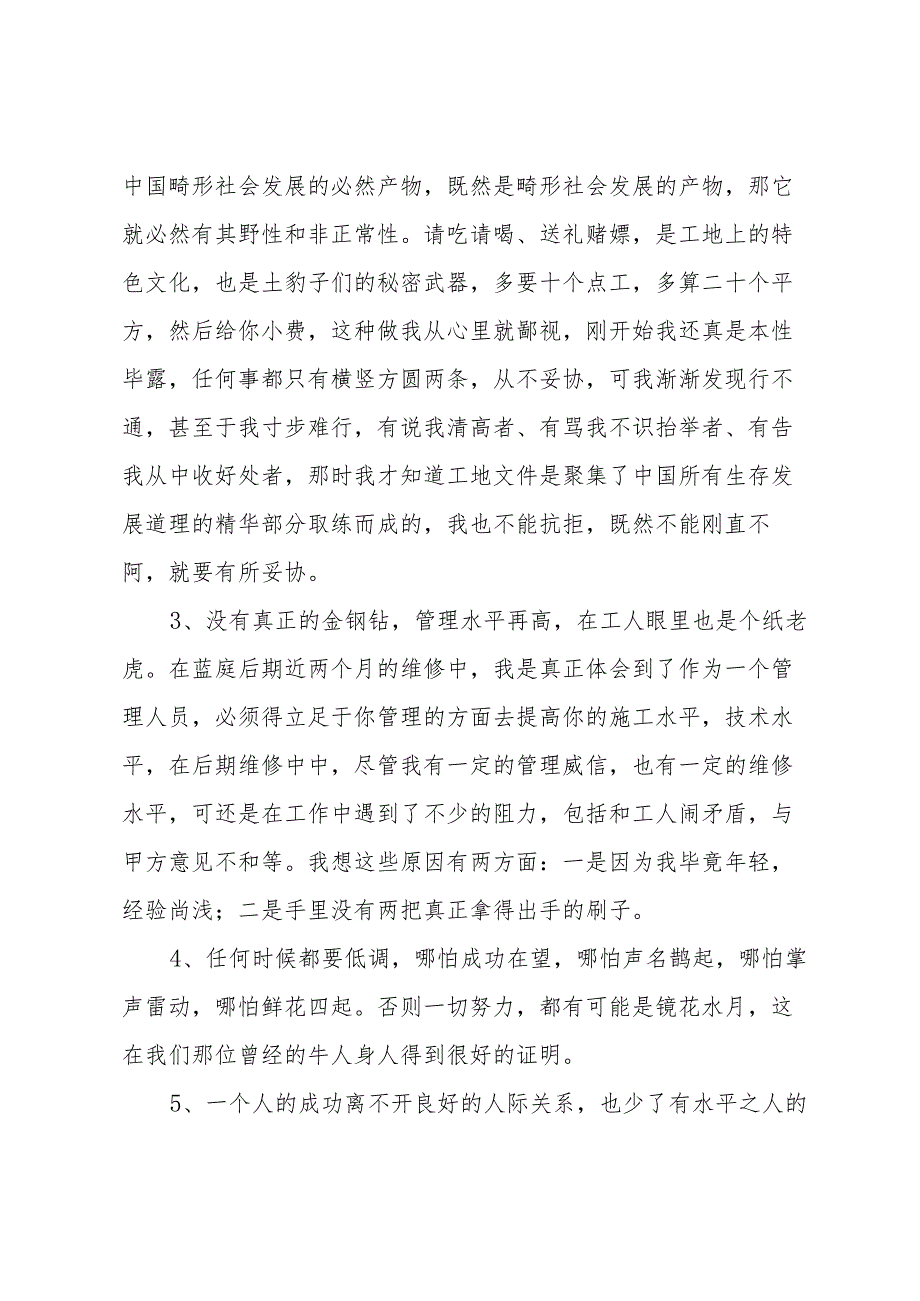 中国畸形社会发展的必然产物，既然是畸形社会发展的产物，那它
就必然有其野性和非正常性。请吃请喝、送礼赌嫖，是工地上的特
色文化，也是土豹子们的秘密武器，多要十个点工，多算二十个平
方，然后给你小费，这种做我从心里就鄙视，刚开始我还真是本性
毕露，任何事都只有横竖方圆两条，从不妥协，可我渐渐发现行不
通，甚至于我寸步难行，有说我清高者、有骂我不识抬举者、有告
我从中收好处者，那时我才知道工地文件是聚集了中国所有生存发
展道理的精华部分取练而成的，我也不能抗拒，既然不能刚直不
阿，就要有所妥协。
3、没有真正的金钢钻，管理水平再高，在工人眼里也是个纸老
虎。在蓝庭后期近两个月的维修中，我是真正体会到了作为一个管
理人员，必须得立足于你管理的方面去提高你的施工水平，技术水
平，在后期维修中中，尽管我有一定的管理威信，也有一定的维修
水平，可还是在工作中遇到了不少的阻力，包括和工人闹矛盾，与
甲方意见不和等。我想这些原因有两方面：一是因为我毕竟年轻，
经验尚浅；二是手里没有两把真正拿得出手的刷子。
4、任何时候都要低调，哪怕成功在望，哪怕声名鹊起，哪怕掌
声雷动，哪怕鲜花四起。否则一切努力，都有可能是镜花水月，这
在我们那位曾经的牛人身人得到很好的证明。
5、一个人的成功离不开良好的人际关系，也少了有水平之人的